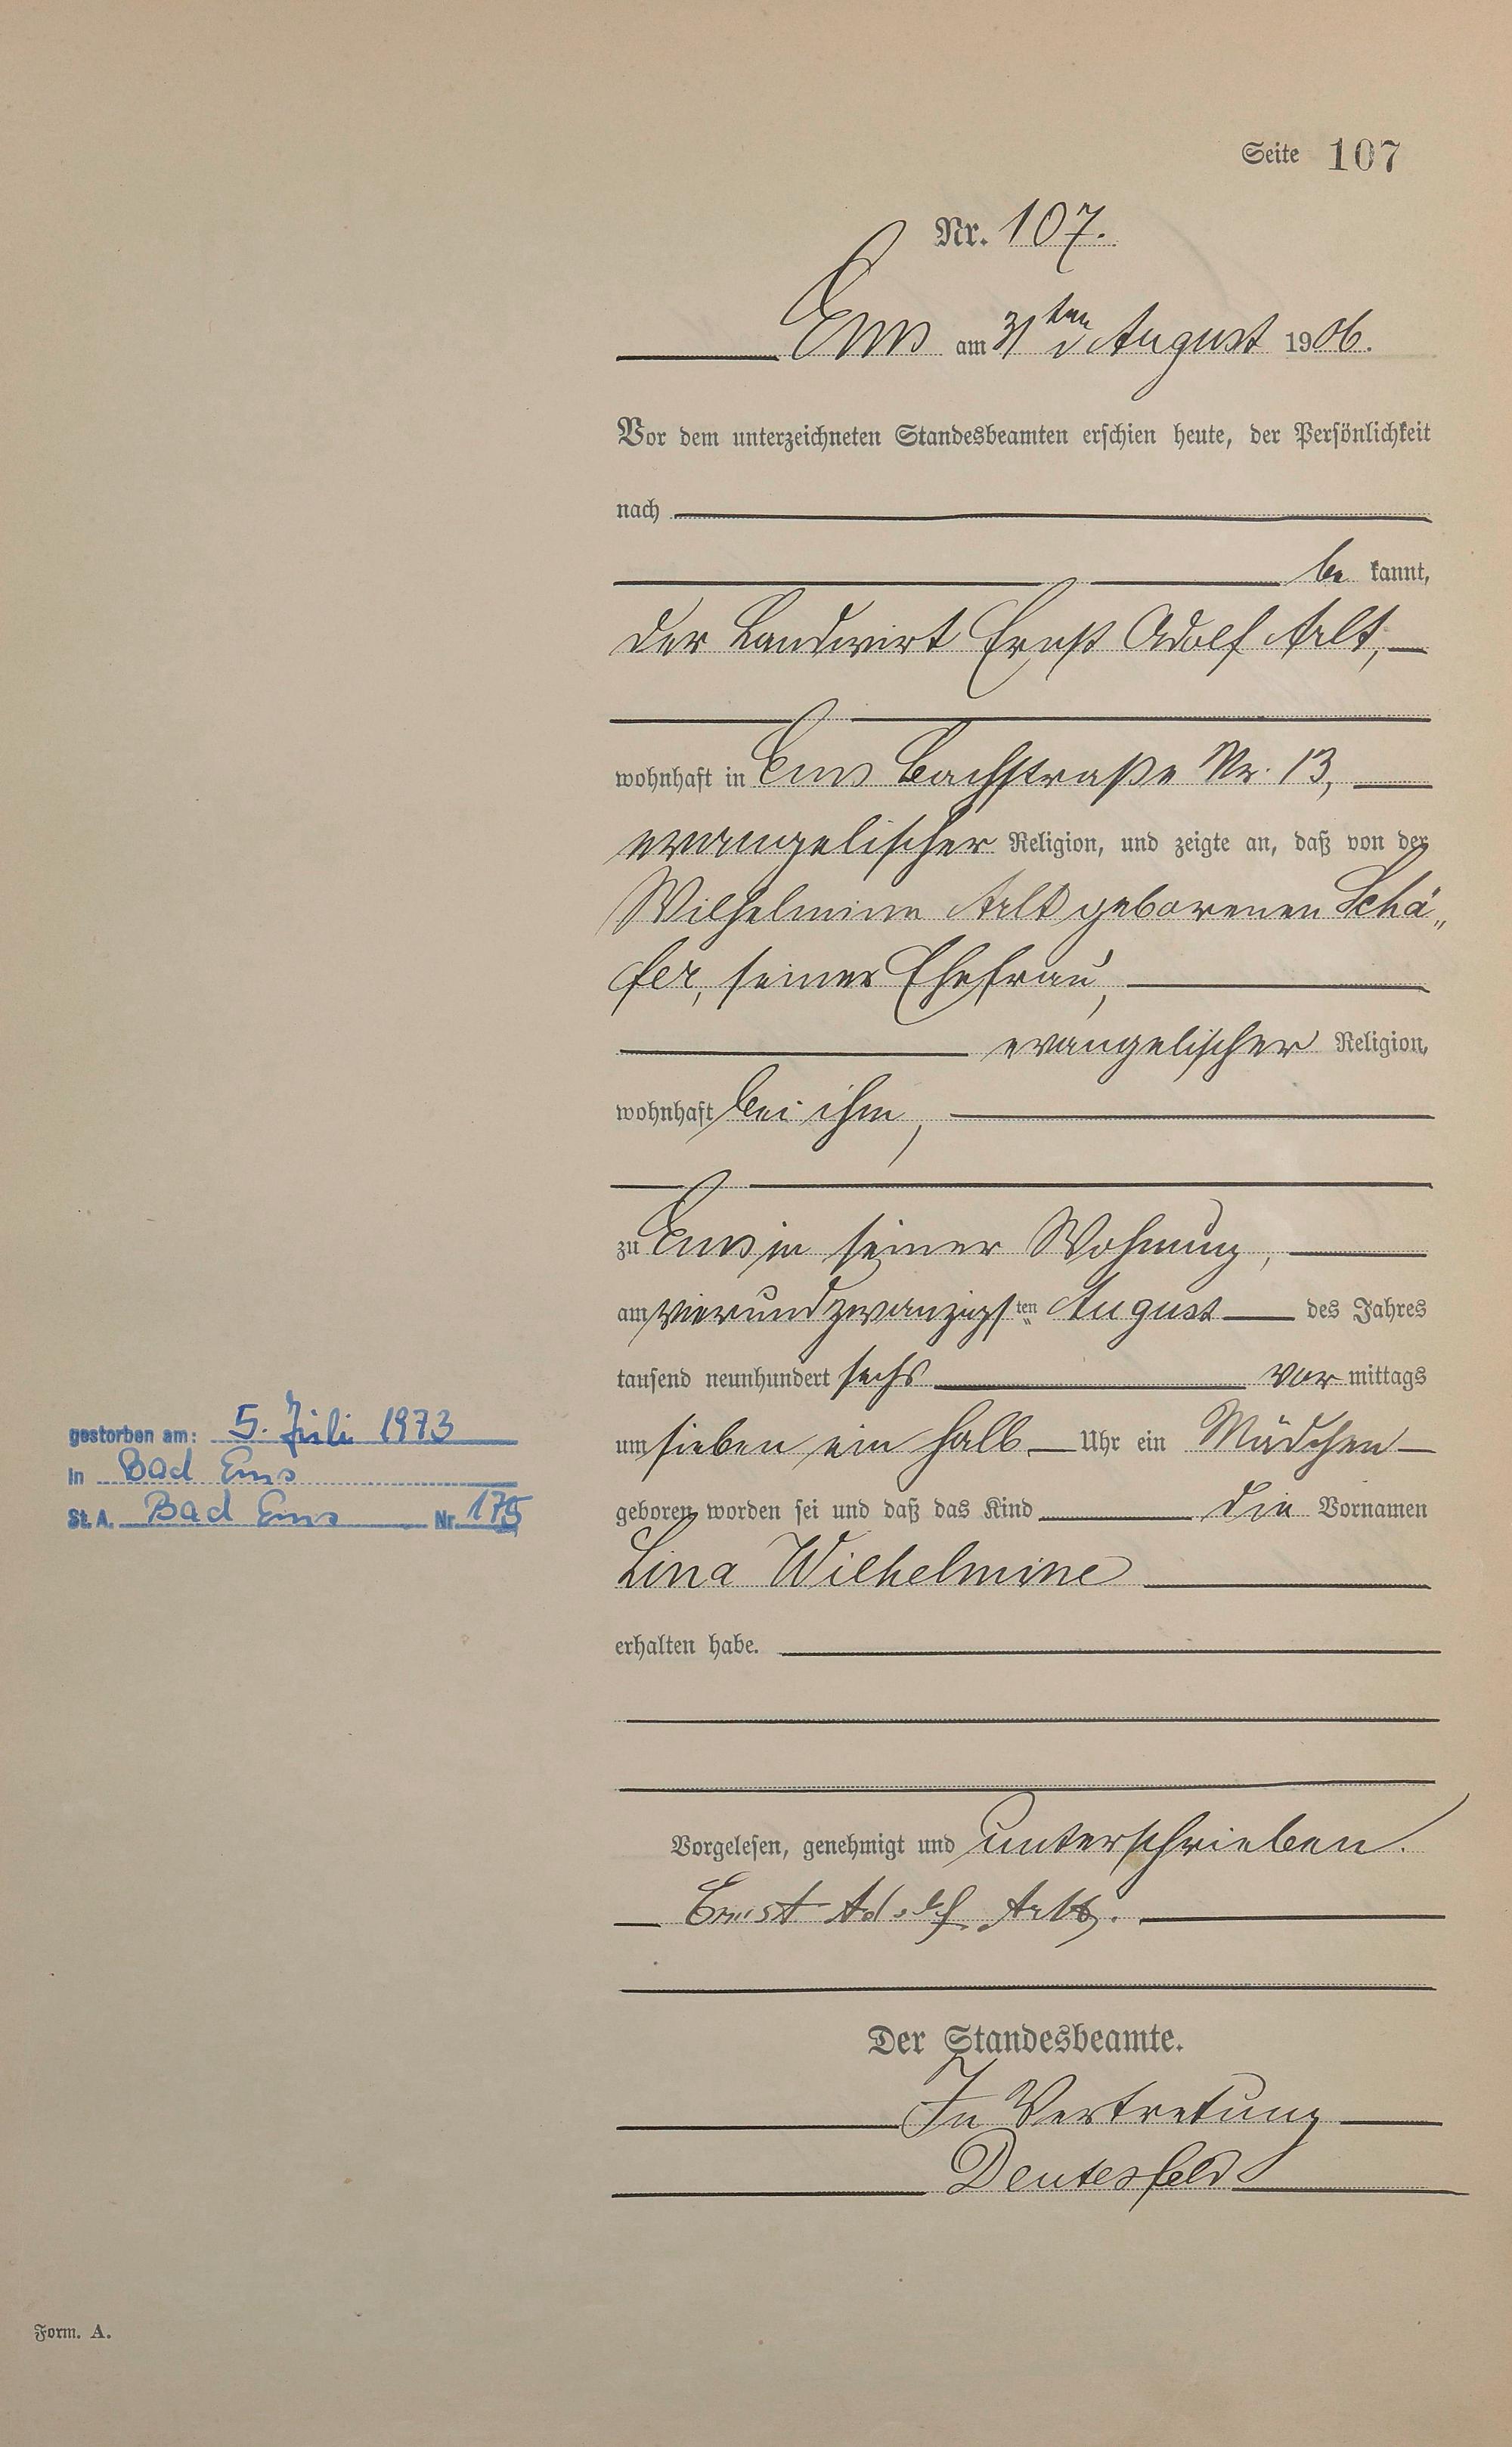 Seite 107
Nr. 107.
Ems am 31ten August 1906.
Vor dem unterzeichneten Standesbeamten erschien heute, der Persönlichkeit
nach
be kannt,
der Landwirt Ernst Adolf Arlt,
wohnhaft in Ems Bachstraße Nr. 13,
evangelischer Religion, und zeigte an, daß von der
Wilhelmine Arlt geborenen Schä„
fer, seiner Ehefrau,
evangelischer Religion,
wohnhaft bei ihm,
zu Ems in seiner Wohnung,
am vierundzwanzigsten August des Jahres
tausend neunhundert sechs vor mittags
um sieben ein halb Uhr ein Mädchen
geboren worden sei und daß das Kind die Vornamen
Lina Wilhelmine
erhalten habe.
Vorgelesen, genehmigt und unterschrieben.
Ernst Adolf Arlt.
Der Standesbeamte.
In Vertretung
Deutesfeld
gestorben am: 5. Juli 1973
in Bad Ems
St. A. Bad Ems Nr. 175
Form. A.